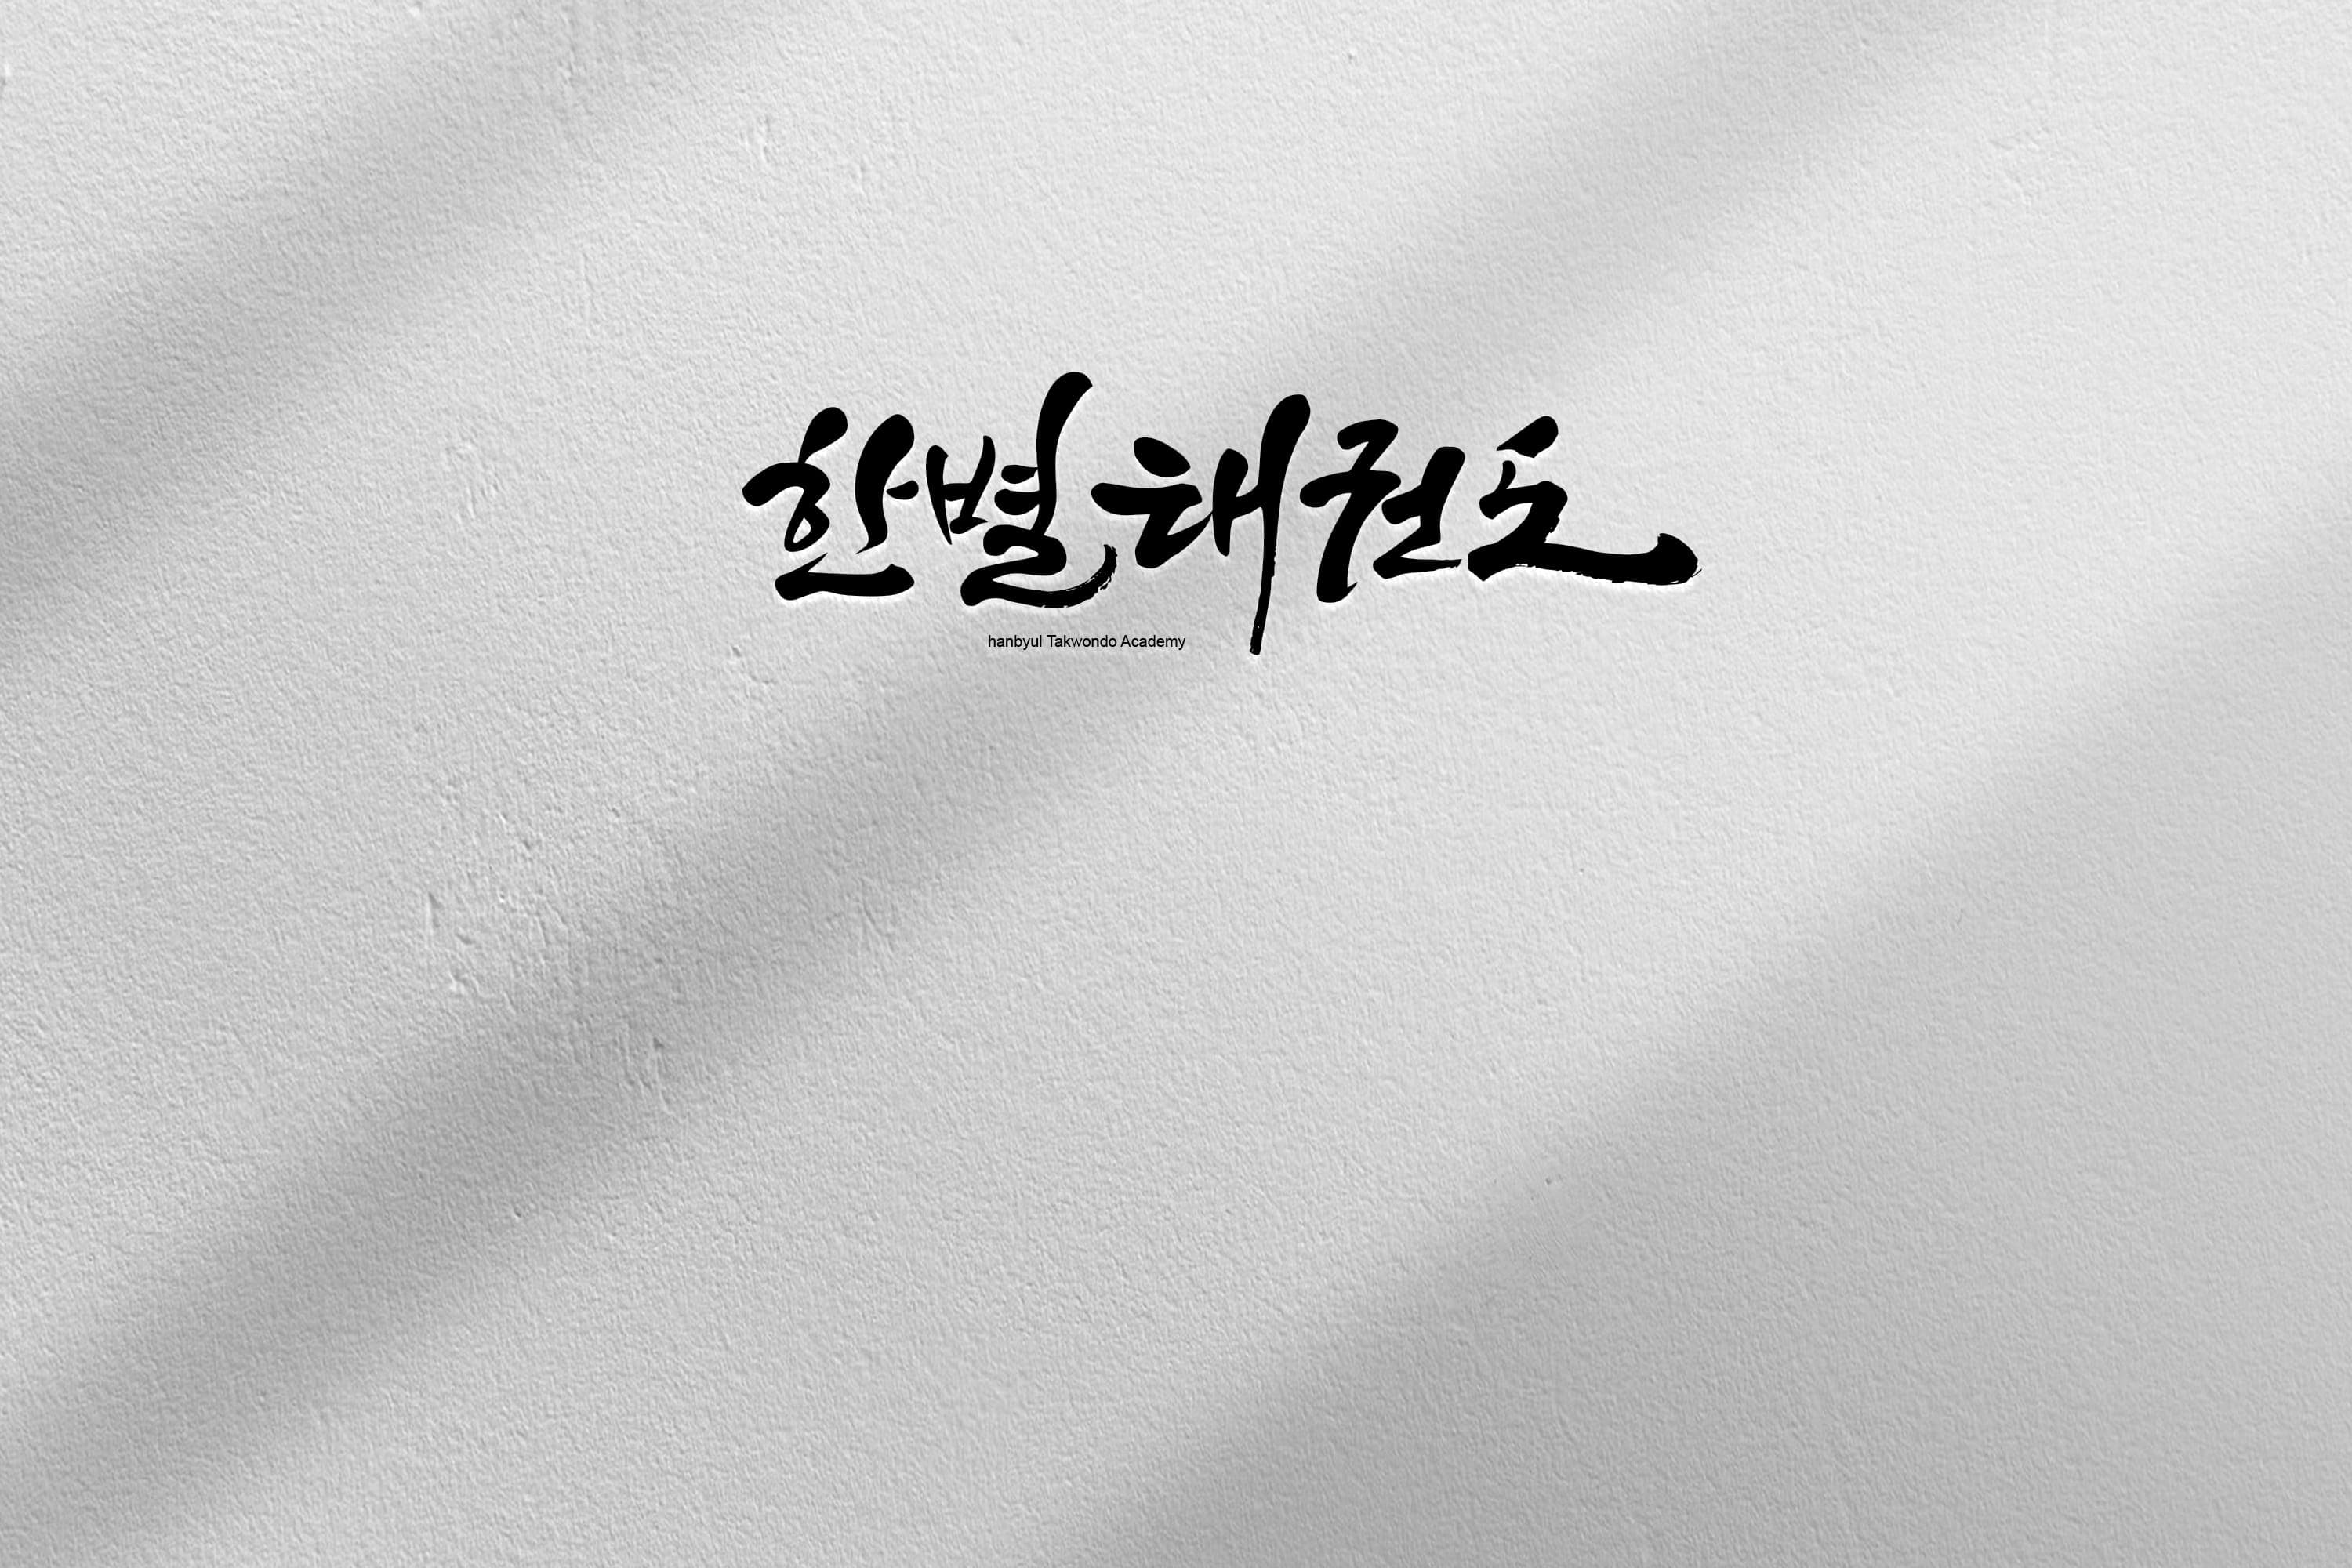 한별태권도
hanbyul Takwondo Academy